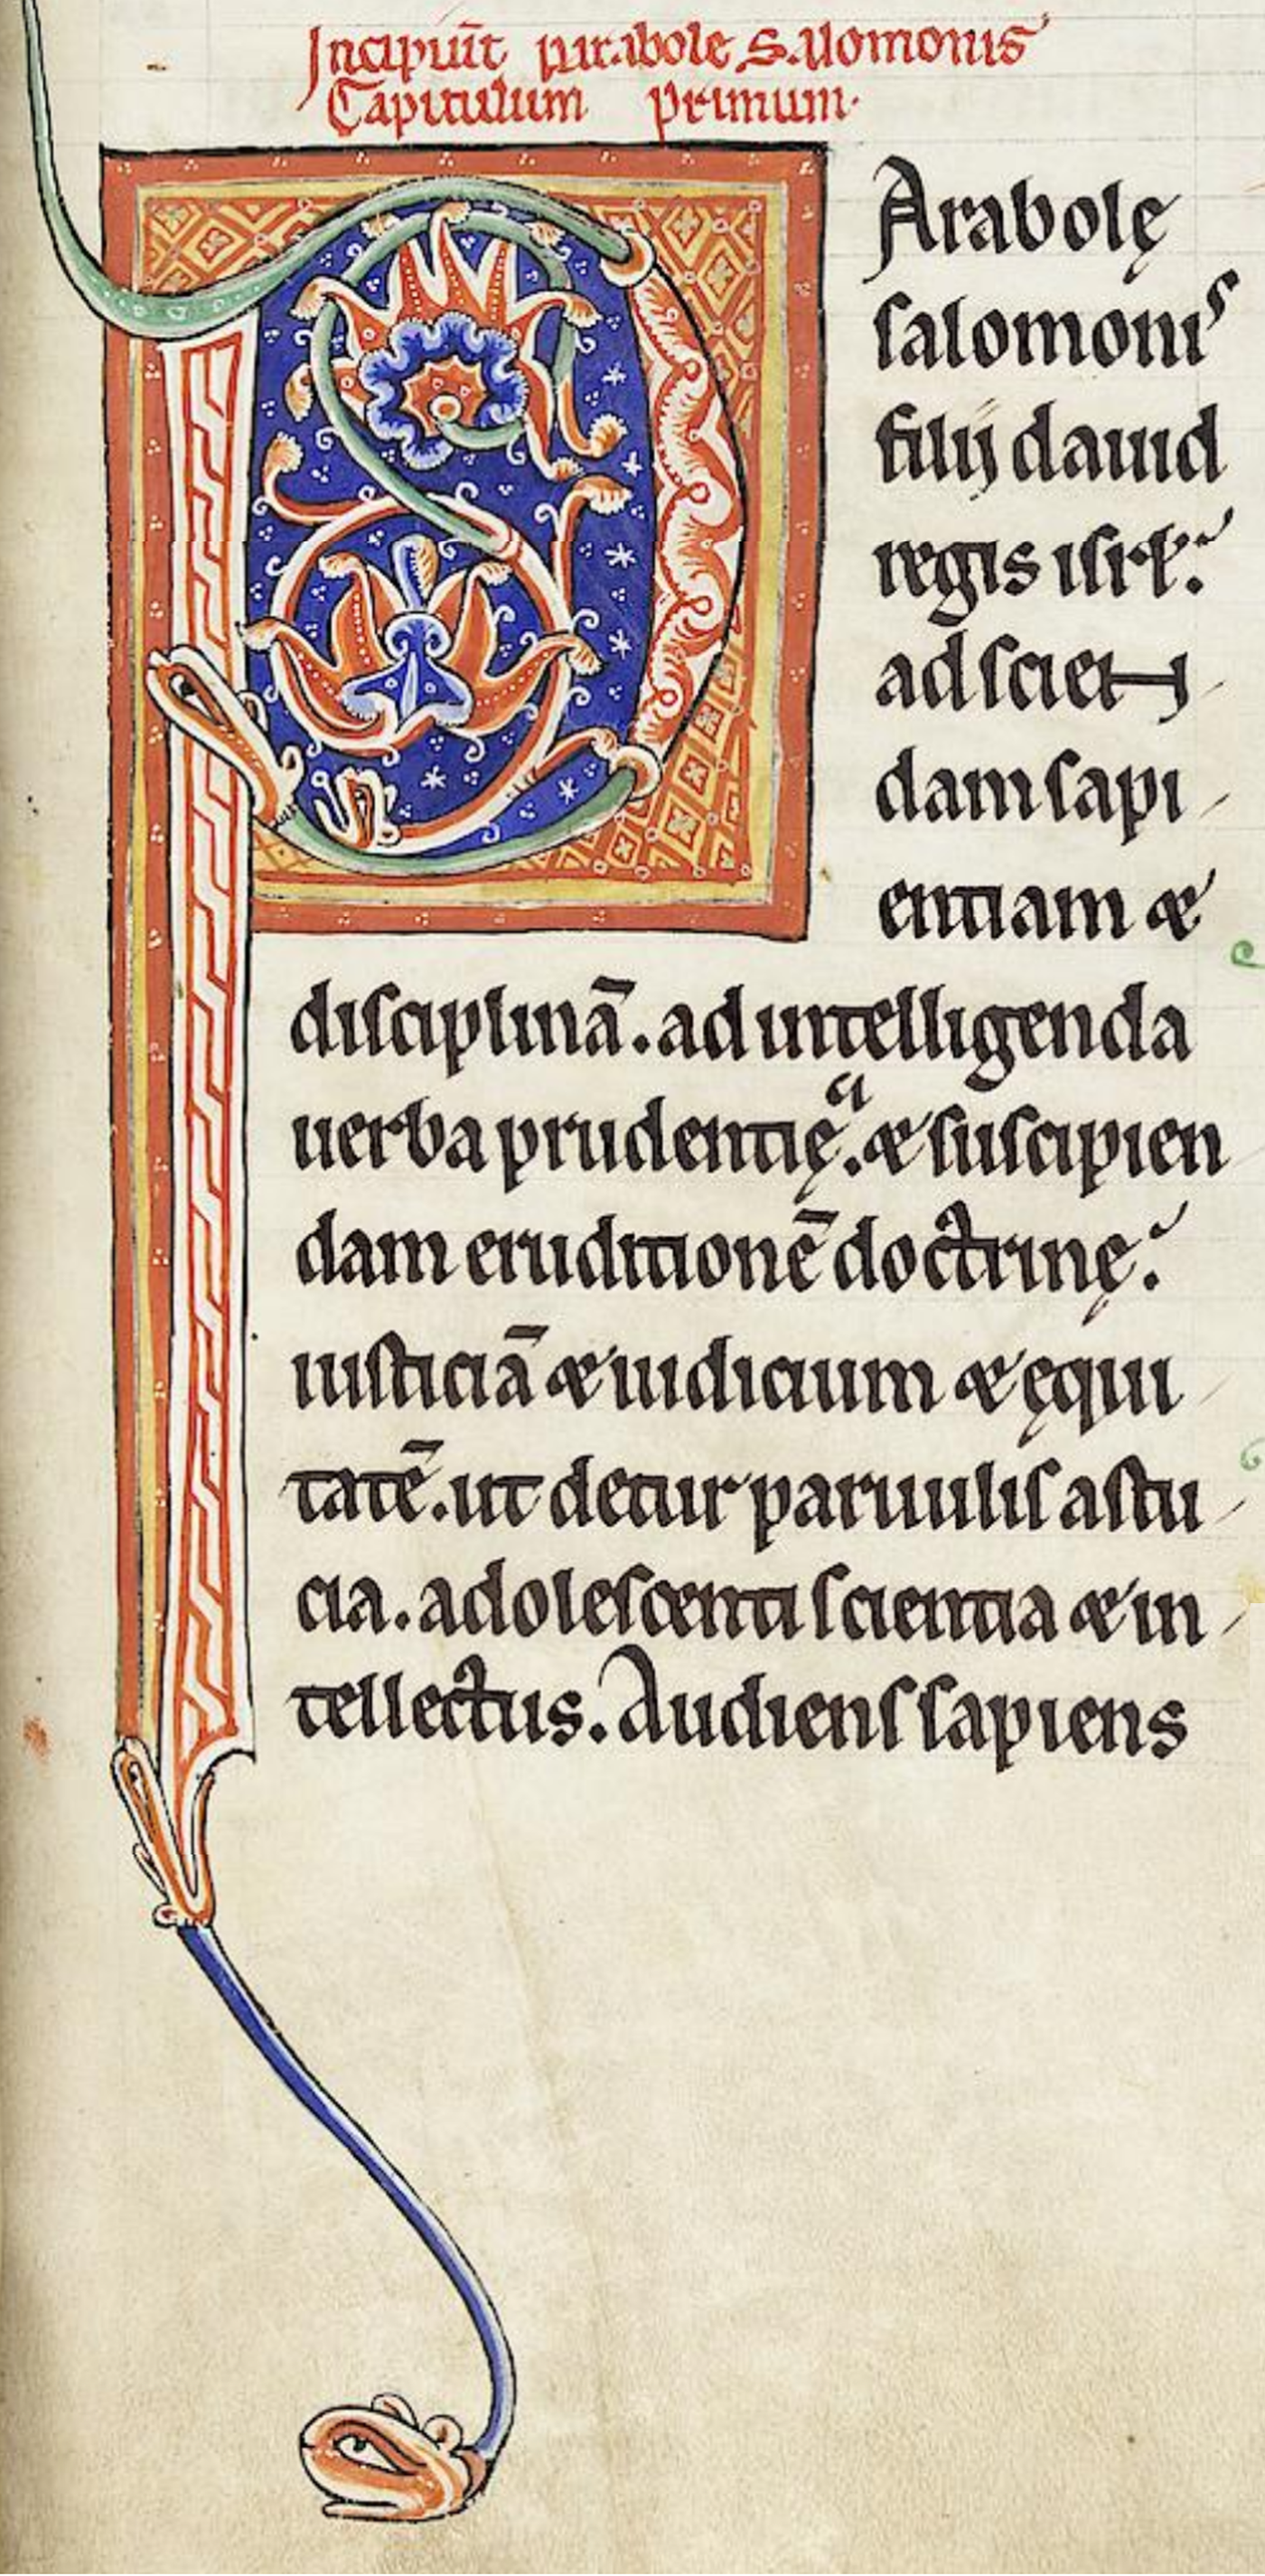 Incipiūt parabole Salomonis
Capitulum primum.
PArabolę
salomonis
filij dauid
regis isrł.
ad scien
dam sapi
entiam &
disciplinā. ad intelligenda
uerba prudentię. & suscipien
dam eruditionē doctrinę.
iusticiā & iudicium & ęqui
tatē. ut detur paruulis astu
cia. adolescenti scientia & in
tellectus. Audiens sapiens